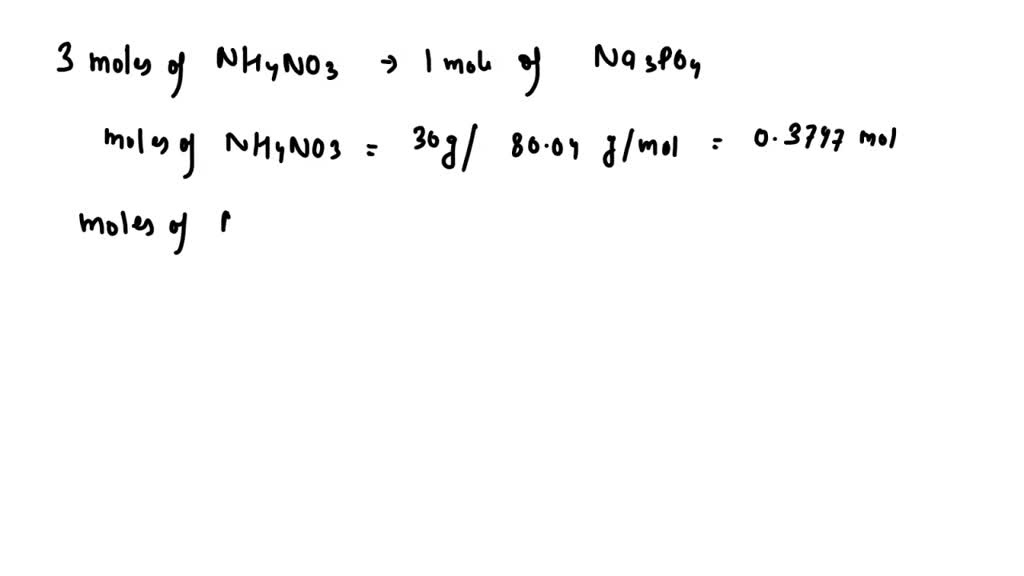 3 moles of NH4NO3 → 1 mole of Na3PO4
moles of NH4NO3 = 30g/ 80.04 g/mol = 0.3747 mol
moles of